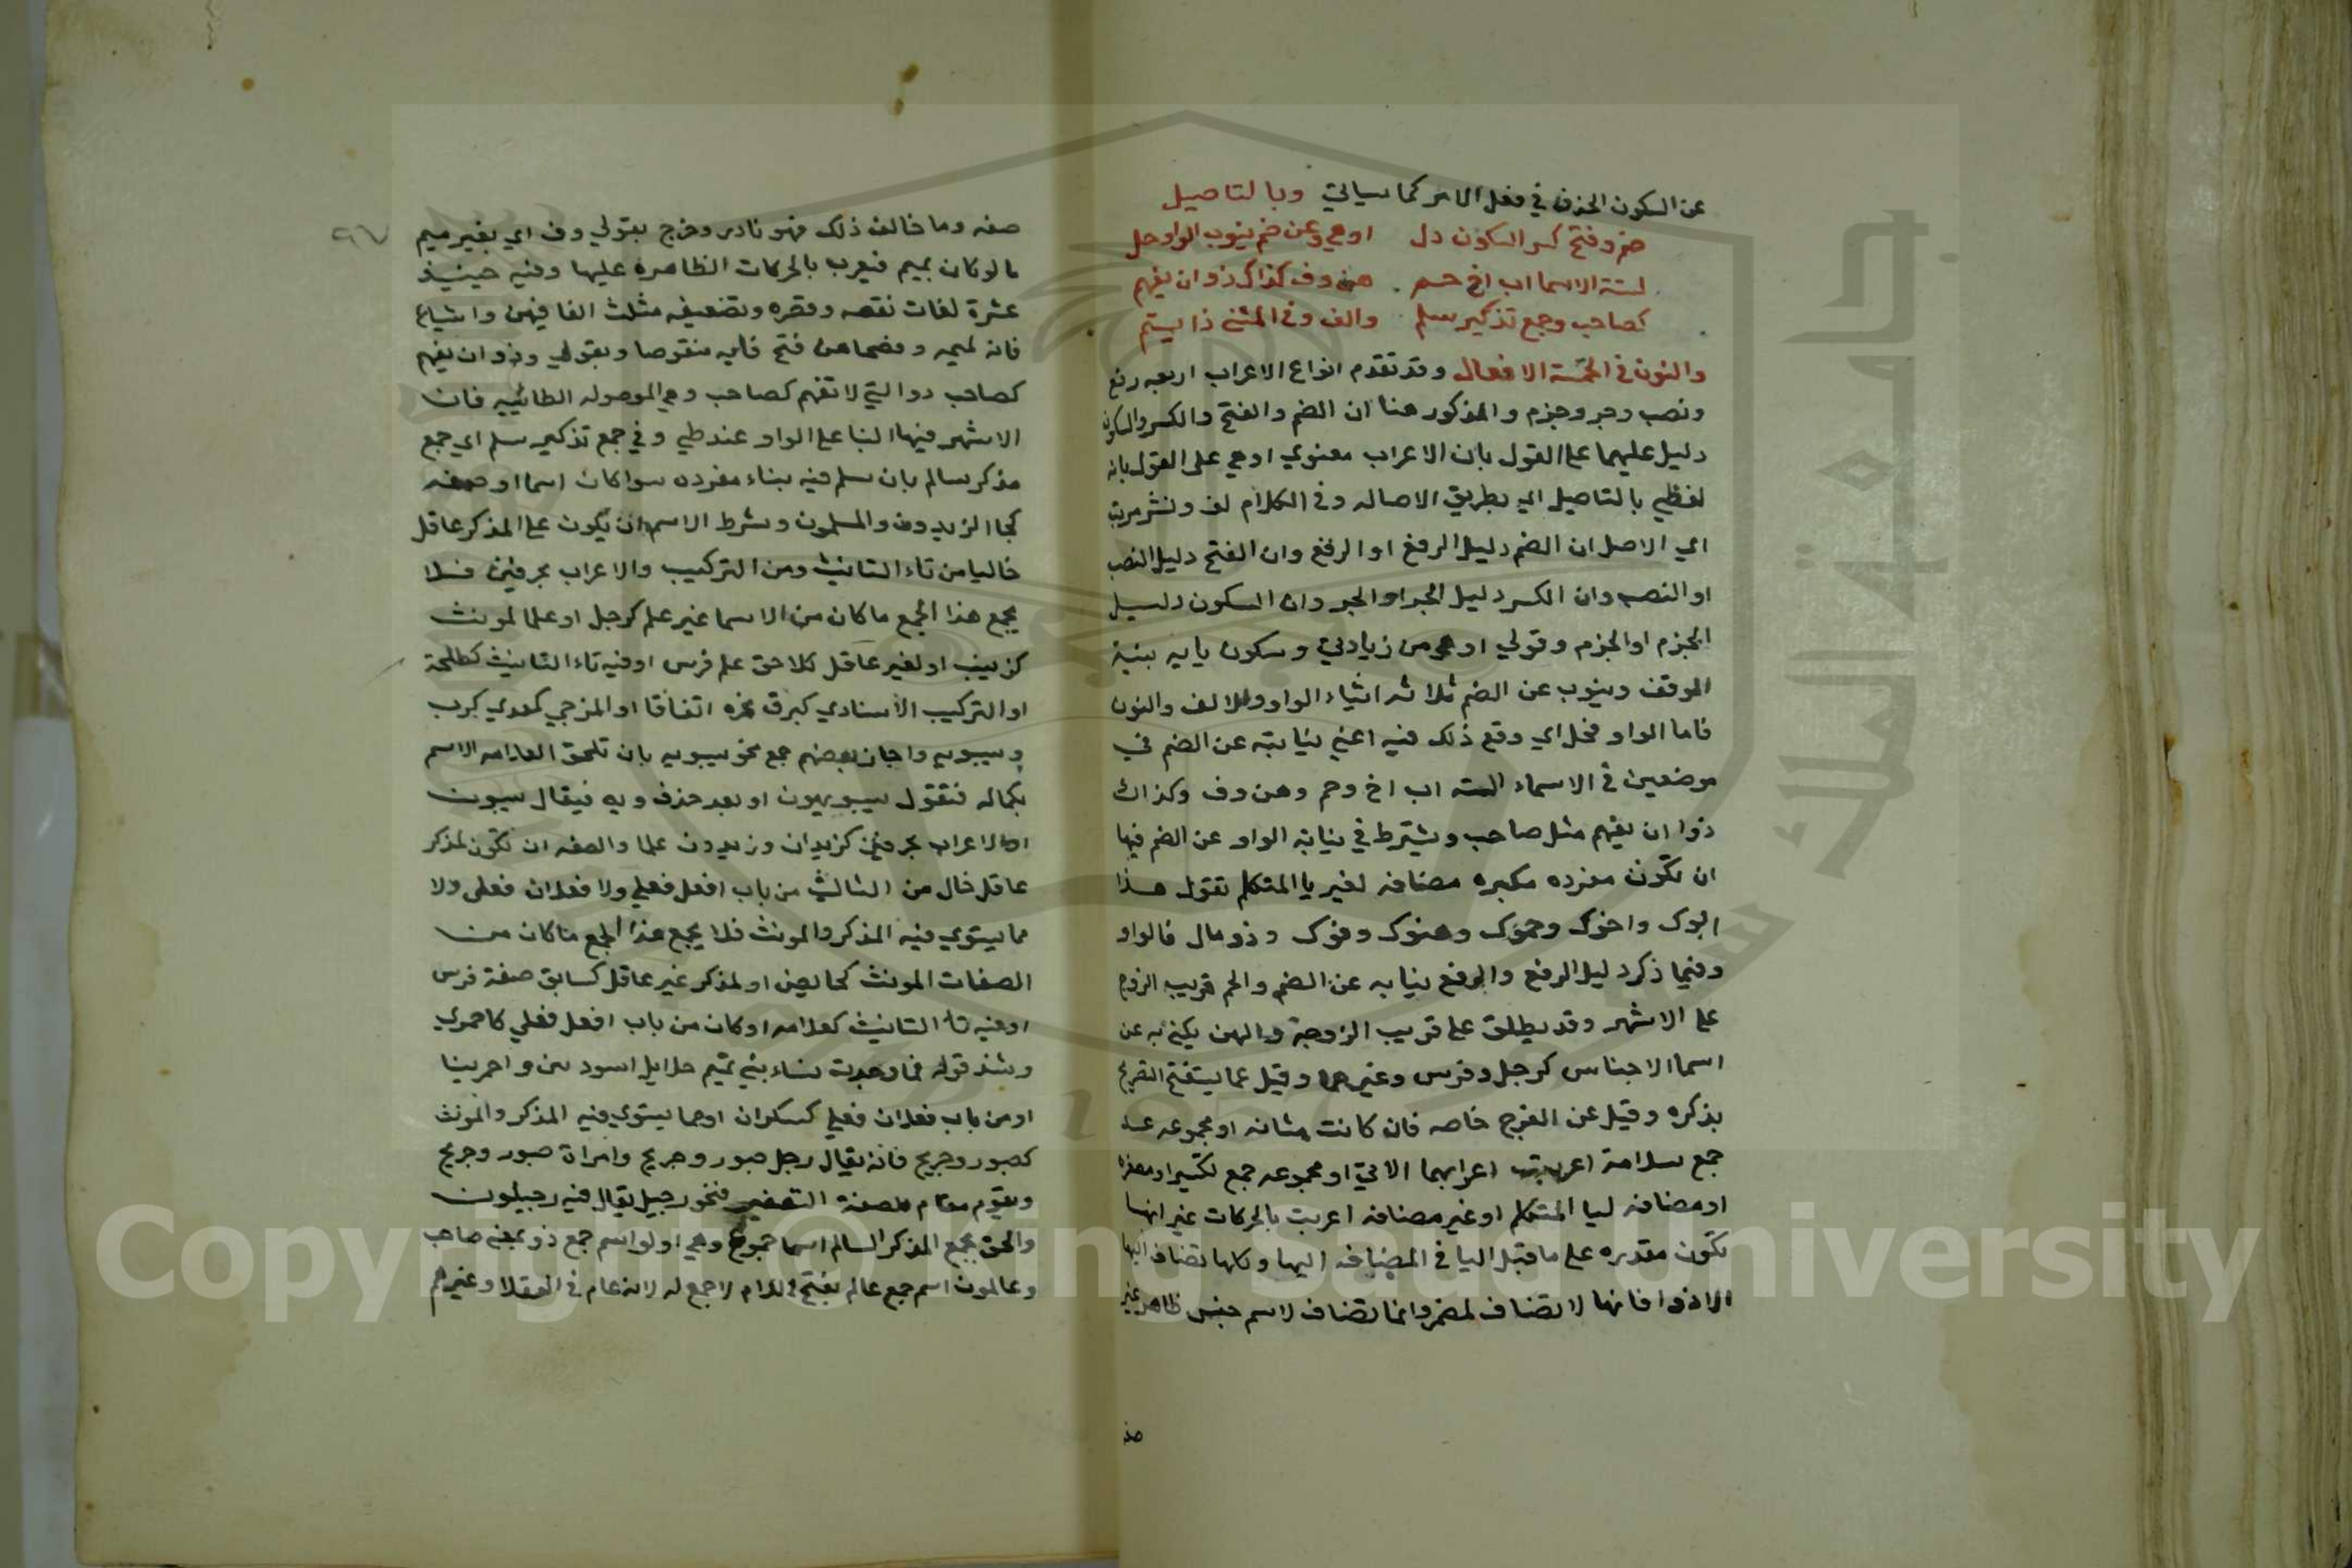 عن السكون الحذف في فعل الامر كما سياتي وبالتاصيل
ضم وفتح كسر السكون دل اوهي وعن ضم ينوب الواو حل
لستة الاسما اب اخ حم هن وف كذاك ذو ان يفهم
كصاحب وجمع تذكير سلم والف في المثنى ذا يستم
والنون في الخمسة الافعال وقد تقدم انواع الاعراب اربعه رفع
ونصب وجر وجزم والمذكور هنا ان الضم والفتح والكسر والسكون
دليل عليهما على القول بان الاعراب معنوي اوهي على القول بانه
لفظي بالتاصيل اي بطريق الاصاله وفي الكلام لف ونشر مرتب
اي الاصل ان الضم دليل الرفع او الرفع وان الفتح دليل النصب
او النصب وان الكسر دليل الجر او الجر وان السكون دليل
الجزم او الجزم وقولي اوهي من زيادتي وسكون يايه بنية
الوقف وينوب عن الضم ثلاثه اشياء الواو والالف والنون
فاما الواو فحل اي وقع ذلك فيه اعني نيابته عن الضم في
موضعين في الاسماء السته اب اخ وحم وهن وف وكذاك
ذوا ان يفهم مثل صاحب ويشترط في نيابة الواو عن الضم فيها
ان تكون مفرده مكبره مضافه لغير يا المتكلم تقول هذا
ابوك واخوك وحموك وهنوك وفوك وذو مال فالواو
وفيما ذكر دليل الرفع والرفع نيابه عن الضم والحم قريب الزوج
على الاشهر وقد يطلق على قريب الزوجة والهن يكنى به عن
اسما الاجناس كرجل وفرس وغيرهما وقيل عما يستقبح التصريح
بذكره وقيل عن الفرج خاصه فان كانت مثناه او مجموعه
جمع سلامة اعربت اعرابهما الاتي او مجموعه جمع تكسير او مصغره
او مضافه ليا المتكلم او غير مضافه اعربت بالحركات غير انها
تكون مقدره على ما قبل اليا في المضافه اليها وكلها تضاف اليها
الا ذوا فانها لا تضاف لمضمر وانما تضاف لاسم جنس ظاهر غير
صفه
صفه وما خالف ذلك فهو نادر وخرج بقولي وف اي بغير ميم
ما لو كان بميم فيعرب بالحركات الظاهره عليها وفيه حينيذ
عشرة لغات نقصه وقصره وتضعيفه مثلث الفا فيهن واتباع
فائه لميمه وفصحاهن فتح فايه منقوصا وبقولي وذو ان يفهم
كصاحب ذو التي لا تفهم كصاحب وهي الموصوله الطائيه فان
الاشهر فيها البنا على الواو عند طي وفي جمع تذكير سلم اي جمع
مذكر سالم بان سلم فيه بناء مفرده سوا كان اسما او صفه
كجا الزيدون والمسلمون وشرط الاسم ان يكون علم المذكر عاقل
خاليا من تاء التانيث ومن التركيب والاعراب بحرفين فلا
يجمع هذا الجمع ما كان من الاسما غير علم كرجل او علما لمونث
كزينب او لغير عاقل كلاحق علم فرس او فيه تاء التانيث كطلحة
او التركيب الاسنادي كبرق نحره اتفاقا او المزجي كمعدي كرب
وسيبويه واجاز بعضهم جمع نحو سيبويه بان تلحق العلامه الاسم
بكماله فتقول سيبويهون او بعد حذف ويه فيقال سيبون
او الاعراب بحرفين كزيدان وزيدون علما والصفه ان تكون لمذكر
عاقل خال من التا ليس من باب افعل فعلى ولا فعلان فعلى ولا
مما يستوي فيه المذكر والمونث فلا يجمع هذا الجمع ما كان من
الصفات المونث كحايض او لمذكر غير عاقل كسابق صفة فرس
او فيه تا التانيث كعلامه او كان من باب افعل فعلي كاحمري
وشذ قوله فما وجدت نساء بني تميم حلايل اسودين واحرينا
او من باب فعلان فعلي كسكران او مما يستوي فيه المذكر والمونث
كصبور وجريح فانه يقال رجل صبور وجريح وامراة صبور وجريح
ويقوم مقام الصفة التصغير فنحو رجيل يقال فيه رجيلون
والحق بجمع المذكر السالم اسما جموع وهي اولو اسم جمع ذو بمعنى صاحب
وعالمون اسم جمع عالم بفتح اللام لا جمع له لانه عام في العقلا وغيرهم
٩٧
Copyright © King Saud University
جامعة الملك سعود
1957